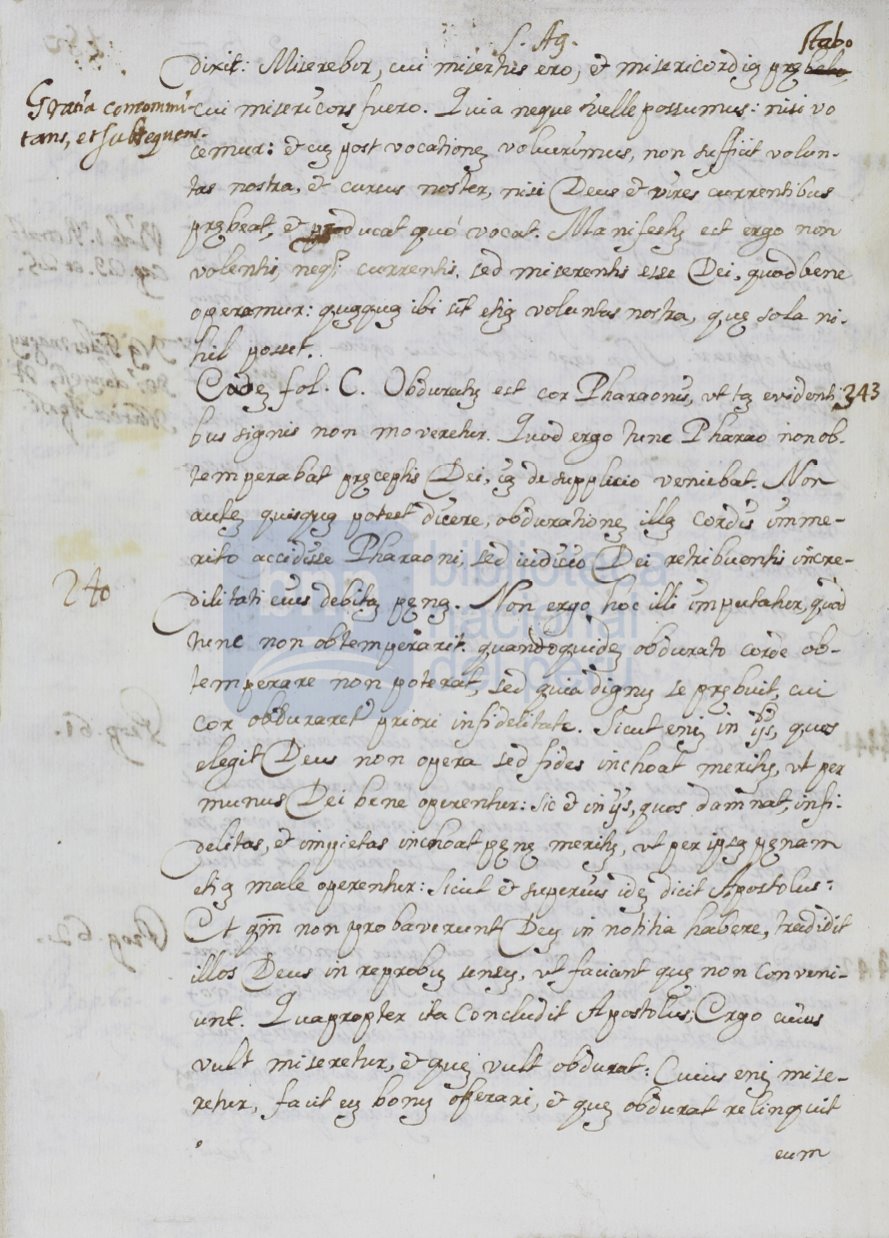 S. Ag.
stabo
dixit: Miserebor, cui misertus ero, et misericordiã prębebo,
Gratia conrommi-
tans, et subsequens.
cui misericors fuero. Quia neque velle possumus: nisi vo
cemur: et cũ post vocationẽ voluerimus, non sufficit volun-
tas nostra, et cursus noster, nisi Deus et vires currentibus
prębeat, et producat quó vocat. Manifestũ est ergo non
volentis, neq; currentis, sed miserentis esse Dei, quod bene
operamur: quãquã ibi sit etiã voluntas nostra, quę sola ni-
hil posset.
Eodẽ fol. C. Obduratũ est cor Pharaonis, vt tã evidenti
343
bus signis non moveretur. Quod ergo tunc Pharao non ob-
temperabat pręceptis Dei, iã de supplicio veniebat. Non
autẽ quisquã potest dicere, obdurationẽ illã cordis imme-
rito accidisse Pharaoni, sed iudicio Dei retribuentis incre-
240
dilitati eius debitã pęnã. Non ergo hoc illi imputatur, quòd
tunc non obtemperarit. quandoquidẽ obdurato corde ob-
temperare non poterat, sed quia dignũ se prębuit, cui
cor obduraret priori infidelitate. Sicut enĩ in ijs, quos
elegit Deus non opera sed fides inchoat meritũ, vt per
munus Dei bene operentur: sic et in ijs, quos damnat, infi-
delitas, et impietas inchoat pęnę meritũ, vt per ipsã pęnam
etiã male operentur: sicut et superius idẽ dicit Apostolus:
Et qm̃ non probaverunt Deũ in notitia habere, tradidit
illos Deus in reprobũ sensũ, vt faciant quę non conveni-
unt. Quapropter ita concludit Apostolus; Ergo cuius
vult miseretur, et quẽ vult obdurat: Cuius enĩ mise-
retur, facit eũ bonũ operari, et quẽ obdurat relinquit
eum
biblioteca
nacional
del perú